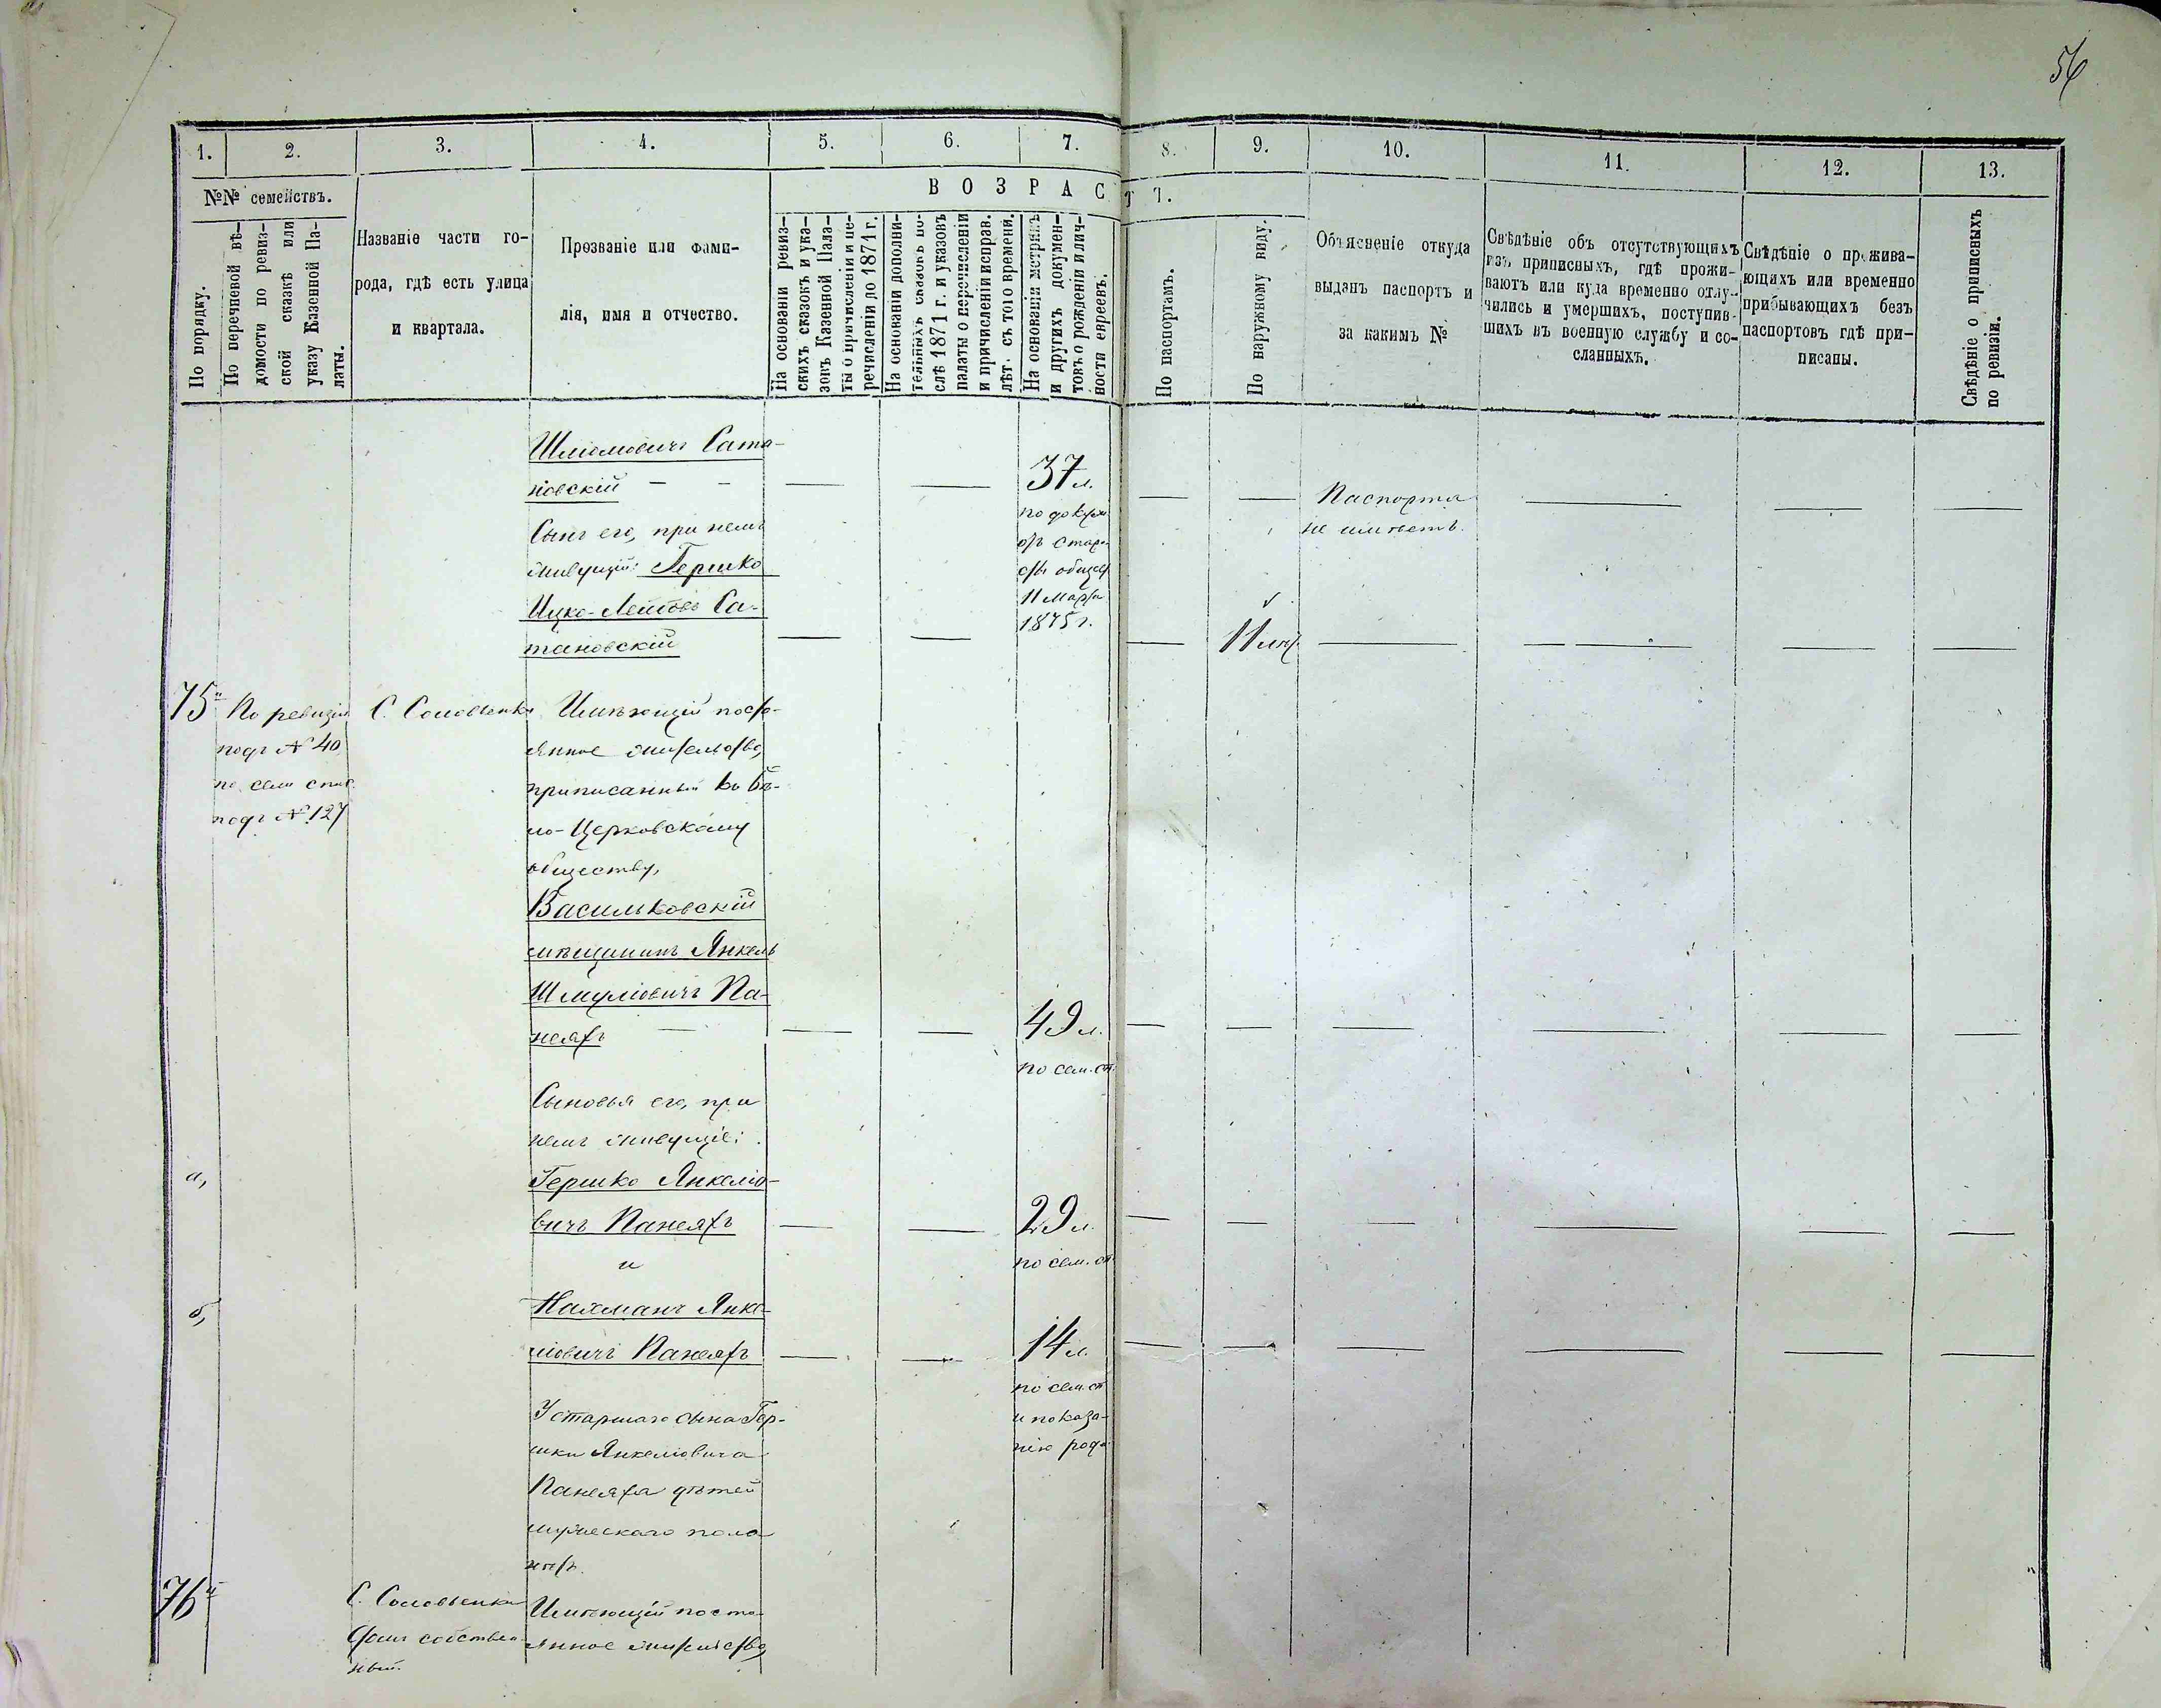 56
1. 2. 3. 4. 5. 6. 7. 8. 9. 10. 11. 12. 13.
№№ семействъ.
По порядку.
По перечневой вѣ-
домости по ревиз-
ской сказкѣ или
указу Казенной Па-
латы.
Названіе части го-
рода, гдѣ есть улица
и квартала.
Прозваніе или фами-
лія, имя и отчество.
ВОЗРАСТ Т.
На основаніи ревиз-
скихъ сказокъ и ука-
зовъ Казенной Пала-
ты о причисленіи и пе-
речисленіи до 1871 г.
На основаніи дополни-
тельныхъ сказокъ по-
слѣ 1871 г. и указовъ
палаты о перечисленіи
и причисленіи исправ.
лѣт. съ того времени.
На основаніи метрикъ
и другихъ докумен-
товъ о рожденіи и лич-
ности евреевъ.
По паспортамъ.
По наружному виду.
Объясненіе откуда
выданъ паспортъ и
за какимъ №
Свѣдѣніе объ отсутствующихъ
изъ приписныхъ, гдѣ прожи-
ваютъ или куда временно отлу-
чились и умершихъ, поступив-
шихъ въ военную службу и со-
сланныхъ.
Свѣдѣніе о прожива-
ющихъ или временно
прибывающихъ безъ
паспортовъ гдѣ при-
писаны.
Свѣдѣніе о приписныхъ
по ревизіи.
Шлiомовичъ Сата-
новскій — — — — 37 л. — — Паспорта — — —
не имѣетъ.
по докум.
отъ старо-
сты общес.
11 Марта
1875 г.
Сынъ его, при немъ
живущій: Гершко
Ицко-Лейбовъ Са-
тановскій — — — 11 лѣт. — — — —
75й По ревизіи С. Соловьенка Имѣющій посто-
подъ № 40 янное жительство,
по сем. спис. приписанный къ Бѣ-
подъ № 127 ло-Церковскому
обществу,
Васильковскій
мѣщанинъ Янкель
Шмулiовичъ Па-
неяхъ — — — 49 л. — — — — — —
по сем. сп.
Сыновья его, при
немъ живущіе:
а, Гершко Янкелiо-
вичъ Панеяхъ — — 29 л. — — — — — —
и по сем. сп.
б, Нахманъ Янке-
лiовичъ Панеяхъ — — 14 л. — — — — — —
по сем. сп.
и показа-
нію род.
У старшаго сына Гер-
шки Янкелiовича
Панеяха дѣтей
мужескаго пола
нѣтъ.
76й С. Соловьенка Имѣющій посто-
домъ собствен- янное жительство,
ный.